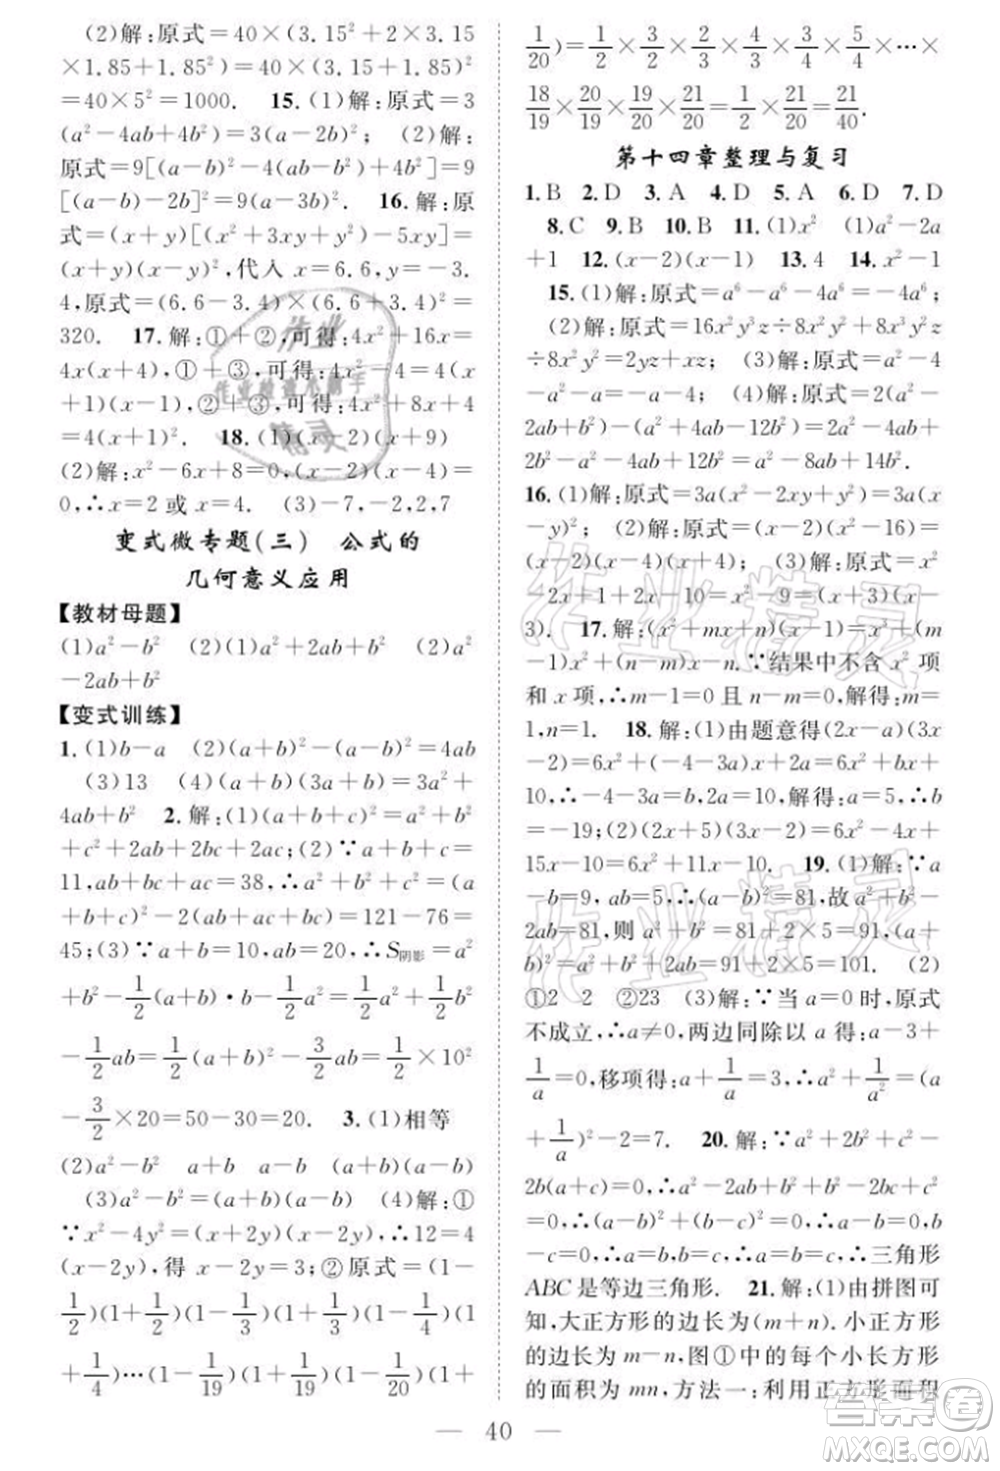 (2)解:原式=40×(3.15²+2×3.15
×1.85+1.85²)=40×(3.15+1.85)²
=40×5²=1000. 15.(1)解:原式=3
(a²-4ab+4b²)=3(a-2b)²; (2)解:
原式=9[(a-b)²-4(a-b)+4]=9
[(a-b)-2b]²=9(a-3b)². 16.解:原
式=(x+y)[(x²+3xy+y²)-5xy]=
(x+y)(x-y)²,代入 x=6.6,y=-3.
4,原式=(6.6-3.4)×(6.6+3.4)²=
320. 17.解:①+②,可得:4x²+16x=
4x(x+4),①+③,可得:4x²-4=4(x
+1)(x-1),②+③,可得:4x²+8x+4
=4(x+1)² 18.(1)(x-2)(x+9)
(2)解:x²-6x+8=0,(x-2)(x-4)=
0,∴x=2 或 x=4. (3)-7,-2,2,7
变式微专题(三) 公式的
几何意义应用
【教材母题】
(1)a²-b² (2)a²+2ab+b² (2)a²
-2ab+b²
【变式训练】
1.(1)b-a (2)(a+b)²-(a-b)²=4ab
(3)13 (4)(a+b)(3a+b)=3a²+
4ab+b² 2.解:(1)(a+b+c)²=a²+b²
+c²+2ab+2ac+2bc;(2)∵a+b+c=
11,ab+bc+ac=38,∴a²+b²+c²=(a
+b+c)²-2(ab+ac+bc)=121-76=
45;(3)∵a+b=10,ab=20,∴S阴影=a²
+b²-1/2(a+b)·b-1/2a²=1/2a²+1/2b²
-1/2ab=1/2(a+b)²-3/2ab=1/2×10²
-3/2×20=50-30=20. 3.(1)相等
(2)a²-b² a+b a-b (a+b)(a-b)
(3)a²-b²=(a+b)(a-b) (4)解:①
∵x²-4y²=(x+2y)(x-2y),∴12=4
(x-2y),得 x-2y=3;②原式=(1-
1/2)(1+1/2)(1-1/3)(1+1/3)(1-1/4)(1
+1/4)…(1-1/19)(1+1/19)(1-1/20)(1+
1/20)=1/2×3/2×2/3×4/3×3/4×5/4×…×
18/19×20/19×19/20×21/20=1/2×21/20=21/40.
第十四章整理与复习
1.B 2.D 3.A 4.D 5.A 6.D 7.D
8.C 9.B 10.B 11.(1)x² (2)a²-2a
+1 12.(x-2)(x-1) 13.4 14.x²-1
15.(1)解:原式=a⁶-a⁶-4a⁶=-4a⁶;
(2)解:原式=16x²y³z÷8x²+8x³y²z
÷8x²=2y³z+xy²z; (3)解:原式=a²-4
-a²+a=a-4; (4)解:原式=2(a²-
2ab+b²)-(4a²-b²)+6a²=2a²-4ab+
2b²-4a²+b²+6a²=4a²-4ab+3b².
16.(1)解:原式=3a(x²-2xy+y²)=3a(x
-y)²; (2)解:原式=x²(x²-16)=
x²(x-4)(x+4); (3)解:原式=x²
-2x+1+2x-10=x²-9=(x+3)(x-
3). 17.解:(x²+mx+n)(x-1)=x³+(m
-1)x²+(n-m)x-n.∵结果中不含 x² 项
和 x 项,∴m-1=0 且 n-m=0,解得:m=
1,n=1. 18.解:(1)由题意得(2x-a)(3x
+b)=6x²+(2b-3a)x-ab=6x²+4x+
10,∴-4-ab=10,∴a=5,∴b
=-19;(2)(2x+5)(3x-2)=6x²-4x+
15x-10=6x²+11x-10. 19.(1)解:∵a
-b=9,ab=5,∴(a-b)²=81,故a²+b²-
2ab=81,则 a²+b²=81+2ab=91,∴(a+
b)²=a²+b²+2ab=91+2×5=101. (2)
①2 2 ②23 (3)解:∵当 a=0时,原式
不成立,∴a≠0,两边同除以 a 得:a-3+
1/a=0,移项得:a+1/a=3,∴a²+1/a²=(a
+1/a)²-2=7. 20.解:∵a²+2b²+c²-
2b(a+c)=0,∴a²-2ab+b²+b²-2bc+c²
=0,∴(a-b)²+(b-c)²=0,∴a-b=0,
b-c=0,∴a=b,b=c,∴a=b=c,∴三角形
ABC是等边三角形. 21.解:(1)由拼图可
知,大正方形的边长为(m+n).小正方形
的边长为 m-n,图①中的每个小长方形
的面积为 mn,方法一:利用正方形面积
40
作业精灵
答案圈
MXQE.COM